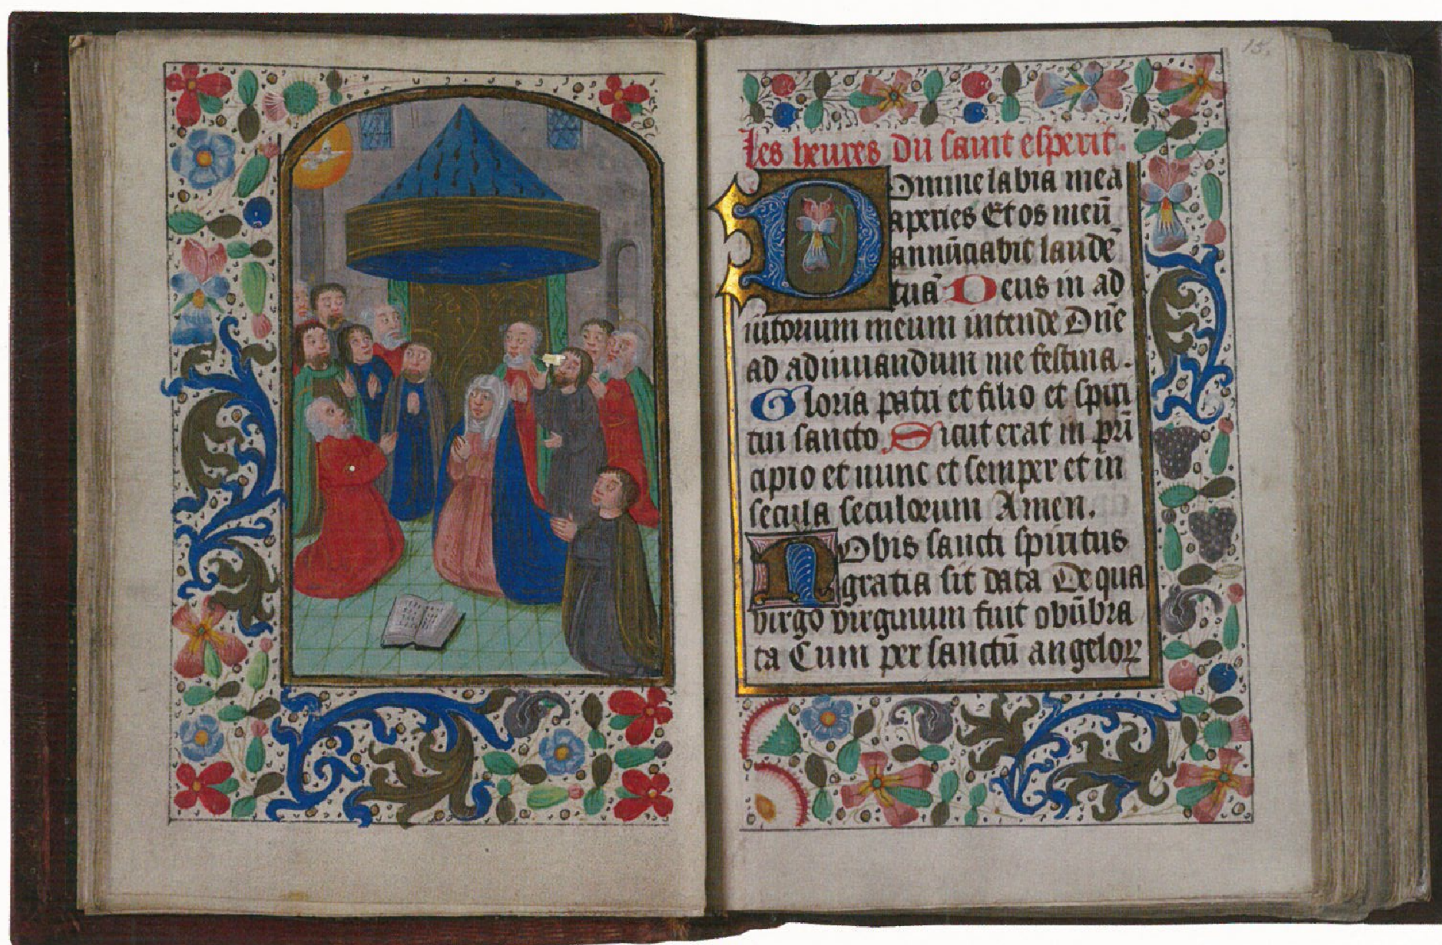 15.
les heures du saint esperit.
Domine labia mea
aperies Et os meū
annūciabit laudē
tuā Deus in ad
iutorium meum intende Dn̄e
ad adiuuandum me festina.
Gloria patri et filio et spiri
tui sancto. Sicut erat in prī
cipio et nunc et semper et in
secula seculorum Amen.
Nobis sancti spiritus
gratia sit data De qua
virgo virginum fuit obūbra
ta Cum per sanctū angeloꝝ